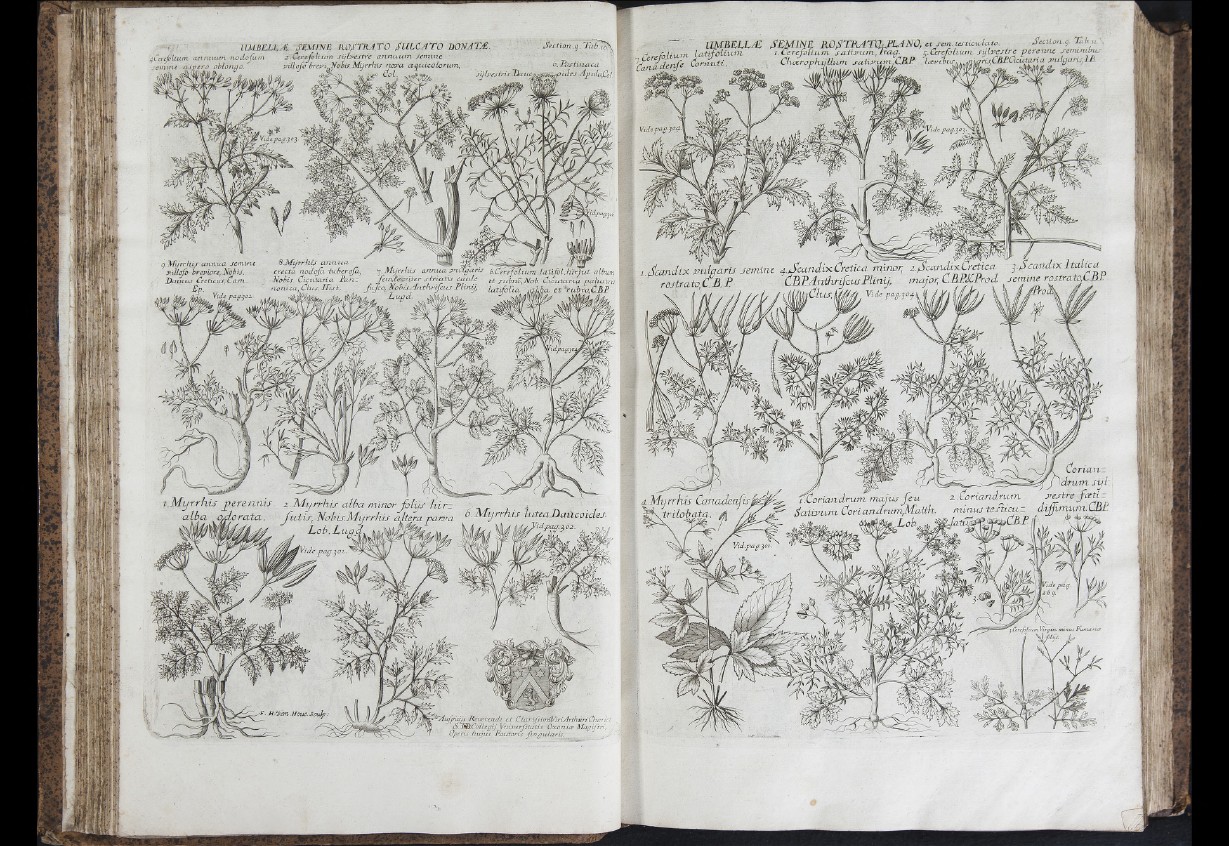 UMBELLÆ SEMINE ROSTRATO SULCATO DONATÆ.
Section. 9. Tab
Cerefolium annuum nodosum
semine aspero oblongo
Cerefolium sylvestre annuum semine
villoso brevi, Nobis Myrrhis nova aquicolorum,
Col.
Pastinaca
sylvestris
Vide pag. 303
9 Myrrhis annua semine
villoso breviore, Nobis,
Daucus Creticus, Cam.
Ep.
Vide pag 302
8. Myrrhis annua
erecta nodosa tuberosa,
Nobis Cicutaria Pan-
nonica, Clus. Hist.
7. Myrrhis annua vulgaris
semine striato
fusco, Nobis Anthriscus Plinij,
Lugd.
6. Cerefolium latifol. hirsut. album
et rubrū, Nob. Cicutaria palustris
latifolia alba et rubra, C.B.P.
Vid. pag.
1. Myrrhis perennis
alba odorata.
2. Myrrhis alba minor folijs hir-
sutis, Nobis. Myrrhis altera parva
Lob. Lugd.
6. Myrrhis lutea Daucoides.
Vid. pag. 302.
Vide pag. 301.
F. H. Van. Hove. Sculp.
Auspicijs Reverendi et Clarissimi Viri Arthuri
Collegij Universitatis Oxoniæ Magistri
Operis hujus Fautoris singularis.
UMBELLÆ SEMINE ROSTRATO, PLANO, et sem. testiculato.
Section. 9. Tab. 11.
Cerefolium latifolium
Canadense Cornuti.
1. Cerefolium sativum, Rag.
Chærophyllum sativum, C.B.P.
Cerefolium sylvestre perenne seminibus
C.B.P. Cicutaria vulgaris, I.B.
Vide pag. 303
Vide pag. 303
1. Scandix vulgaris semine
rostrato, C.B.P.
4. Scandix Cretica minor,
C.B.P. Anthriscus Plinij,
Clus.
Vide pag. 304
2. Scandix Cretica
major, C.B.P. & Prod.
3. Scandix Italica
semine rostrato, C.B.P.
Prod.
4. Myrrhis Canadensis
trilobata.
Vid. pag. 301
1. Coriandrum majus seu
Sativum Coriandrum, Matth.
Lob.
2. Coriandrum
minus testicu-
latum C.B.P.
Corian-
drum syl-
vestre fœti-
dissimum. C.B.P.
Vide pag.
269.
Cerefolium Virgin. minus Fumariæ
folijs.